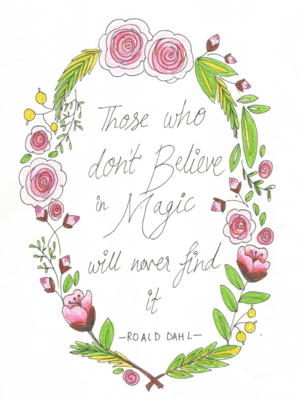 Those who
don't Believe
in Magic
will never find
it
-ROALD DAHL-